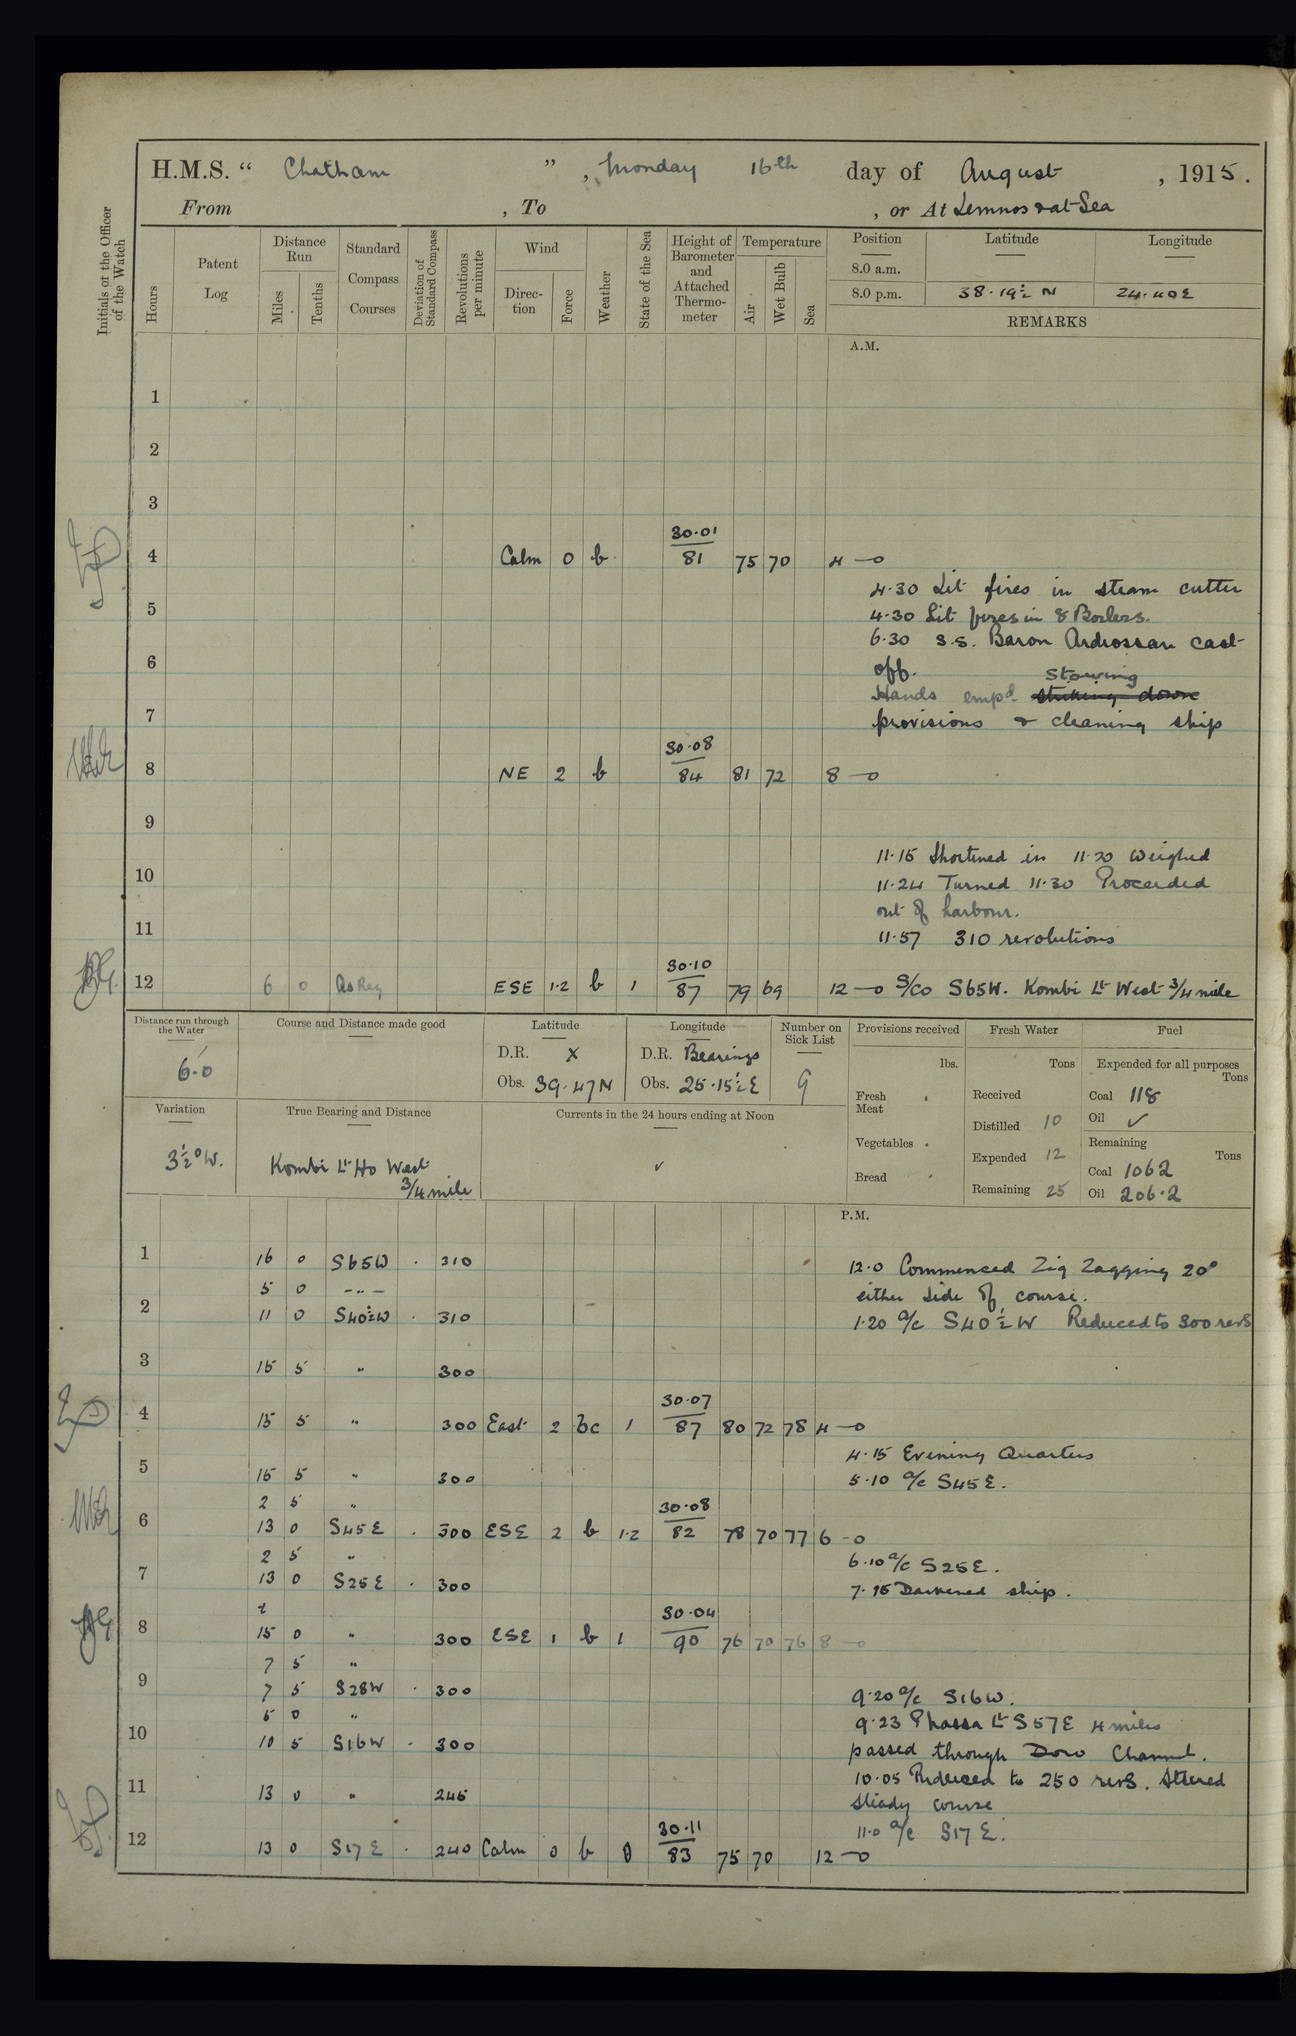 H.M.S. “ Chatham ” , Monday 16th day of August , 1915.
From , To , or At Lemnos & at Sea
Initials of the Officer of the Watch
Hours
Patent Log
Distance Run
Miles
Tenths
Standard Compass Courses
Deviation of Standard Compass
Revolutions per minute
Wind
Direction
Force
Weather
State of the Sea
Height of Barometer and Attached Thermometer
Temperature
Air
Wet Bulb
Sea
Position Latitude Longitude
8.0 a.m.
8.0 p.m. 38.19½ N 24.40 E
REMARKS
A.M.
1
2
3
30.01
4 Calm 0 b 81 75 70 4 —o
4.30 Lit fires in steam cutter
5 4.30 Lit fires in 8 Boilers.
6.30 S.S. Baron Ardrossan cast
6 off.
Stowing
Hands empd. striking down
7 provisions & cleaning ship
30.08
8 NE 2 b 84 81 72 8 —o
9
11.15 Shortened in 11.20 Weighed
10 11.24 Turned 11.30 Proceeded
out of harbour.
11 11.57 310 revolutions
30.10
12 6 0 As Req ESE 1.2 b 1 87 79 69 12 —o S/Co S65W. Kombi Lt West 3/4 mile
Distance run through the Water
6.0
Course and Distance made good
Latitude
D.R. X
Obs. 39.47 N
Longitude
D.R. Bearings
Obs. 25.15½ E
Number on Sick List
9
Provisions received
lbs.
Fresh Meat
Vegetables
Bread
Fresh Water
Tons
Received
Distilled 10
Expended 12
Remaining 25
Fuel
Expended for all purposes
Tons
Coal 118
Oil ✓
Remaining
Tons
Coal 1062
Oil 206.2
Variation
3½° W.
True Bearing and Distance
Kombi Lt Ho West
3/4 mile
Currents in the 24 hours ending at Noon
✓
P.M.
1 16 0 S65W . 310 12.0 Commenced Zig Zagging 20°
5 0 — " — either side of course.
2 11 0 S40½W . 310 1.20 a/c S40½W Reduced to 300 revs
3 15 5 " 300
30.07
4 15 5 " 300 East 2 bc 1 87 80 72 78 4 —o
4.15 Evening Quarters
5 15 5 " 300 5.10 a/c S45E.
2 5 " 30.08
6 13 0 S45E . 300 ESE 2 b 1.2 82 78 70 77 6 —o
2 5 " 6.10 a/c S25E.
7 13 0 S25E . 300 7.15 Darkened ship.
30.04
8 15 0 " 300 ESE 1 b 1 90 76 70 76 8 —o
7 5 "
9 7 5 S28W . 300 9.20 a/c S16W.
5 0 " 9.23 Phassa Lt S57E 4 miles
10 10 5 S16W . 300 passed through Doro Channel.
10.05 Reduced to 250 revs. Steered
11 13 0 " 245 steady course
30.11 11.0 a/c S17E.
12 13 0 S17E . 240 Calm 0 b 0 83 75 70 12 —o